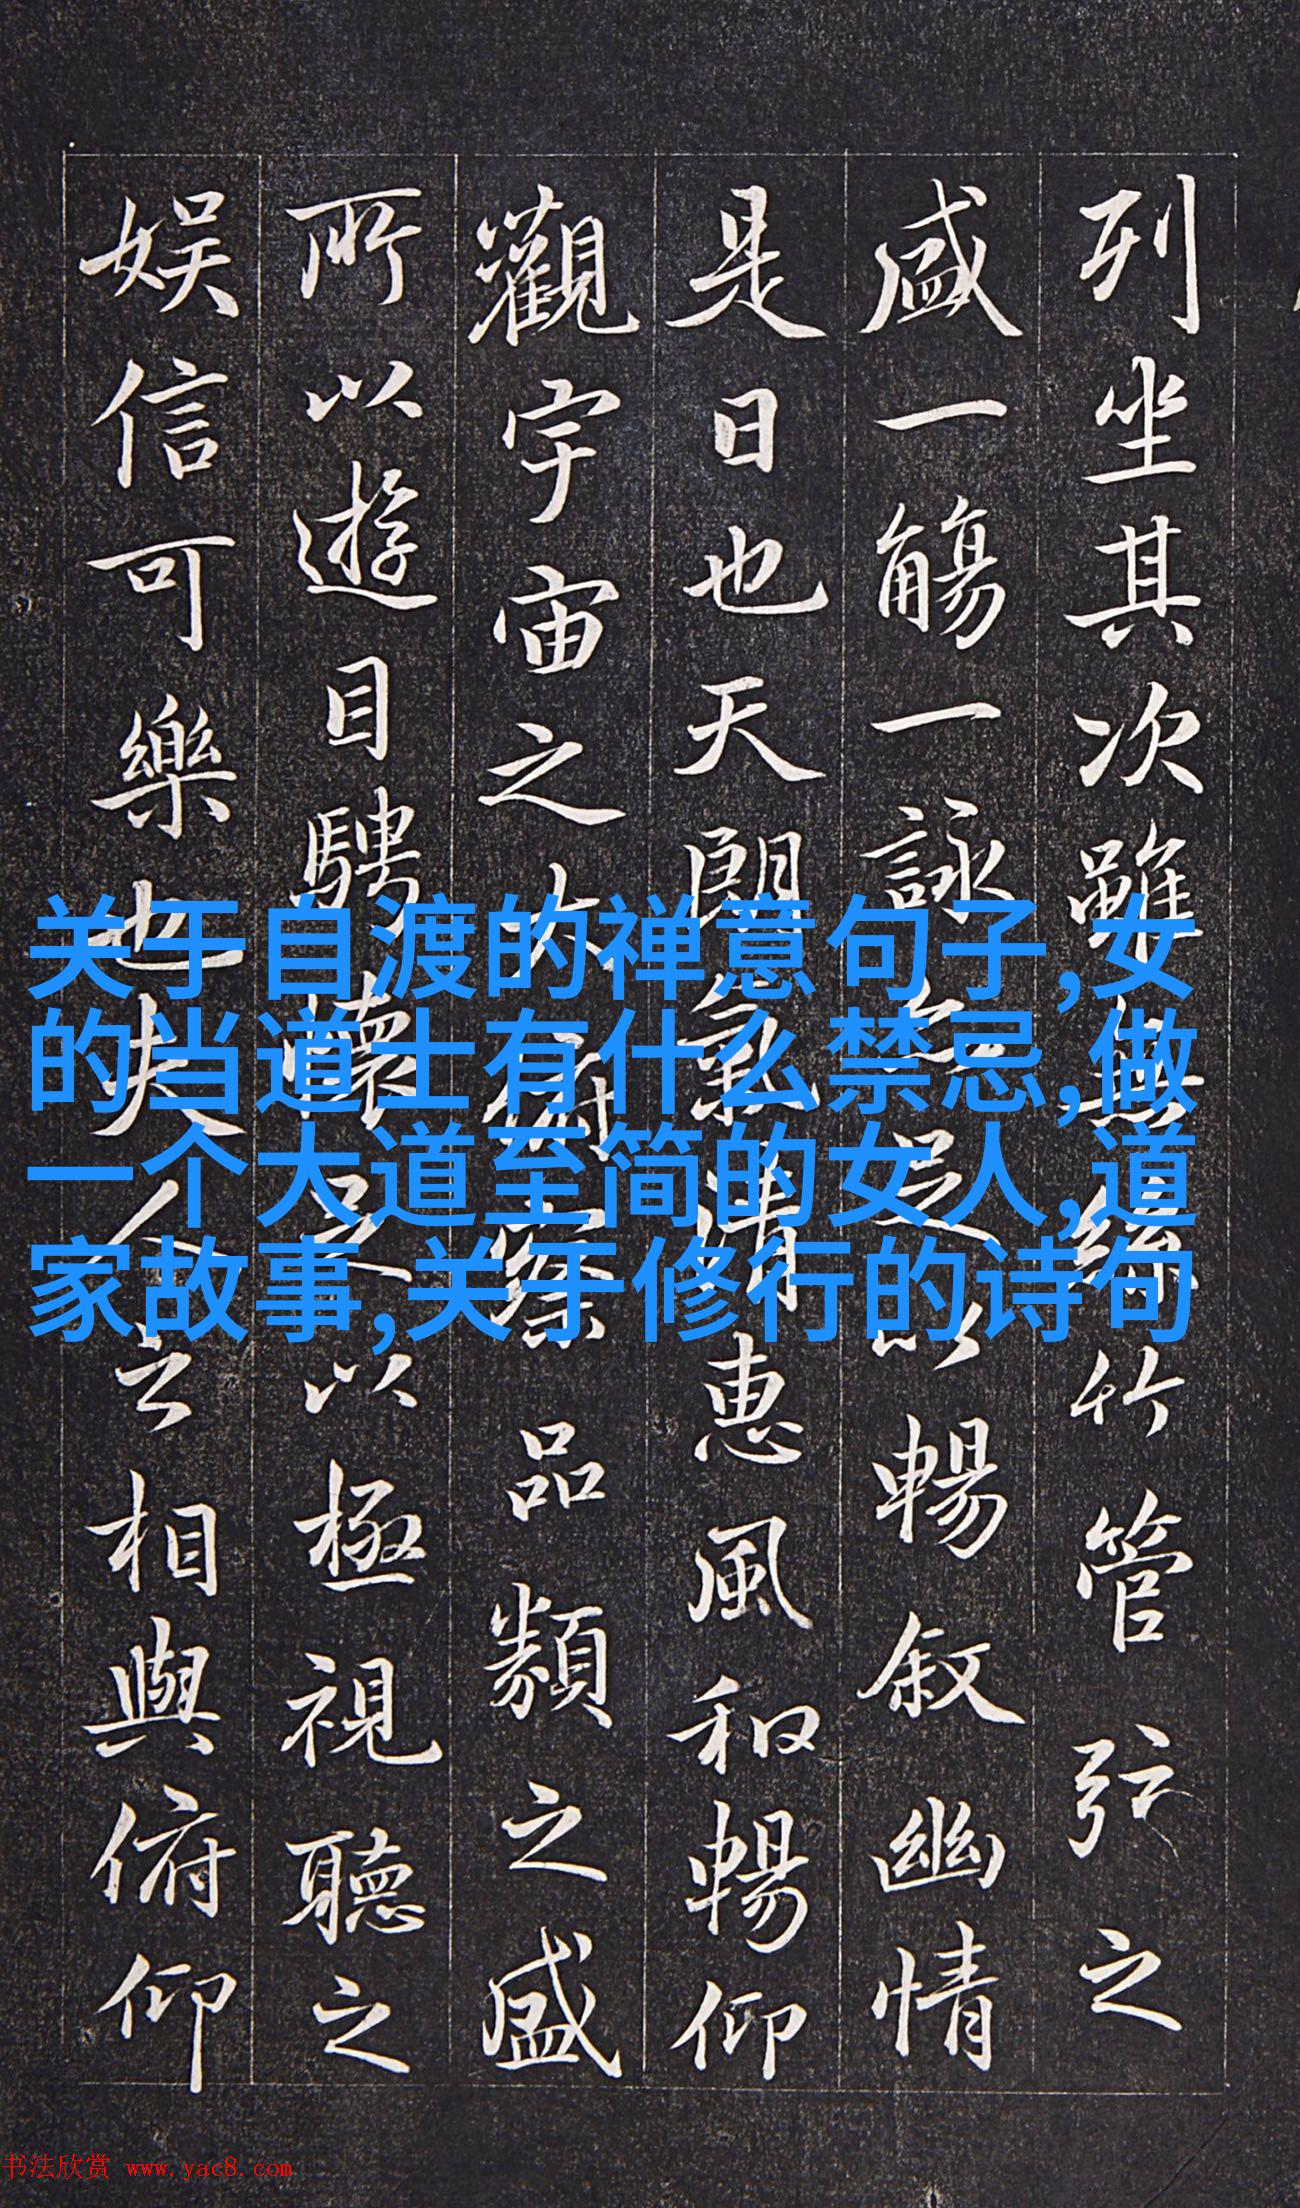 列坐其次雖無絲竹管弦之
盛一觴一詠亦足以暢叙幽情
是日也天朗氣清惠風和暢仰
觀宇宙之大俯察品類之盛
所以遊目騁懷足以極視聽之
娱信可樂也夫人之相與俯仰
关于自渡的禅意句子,女
的当道士有什么禁忌,做
一个大道至简的女人,道
家故事,关于修行的诗句
书法欣赏 www.yac8.com